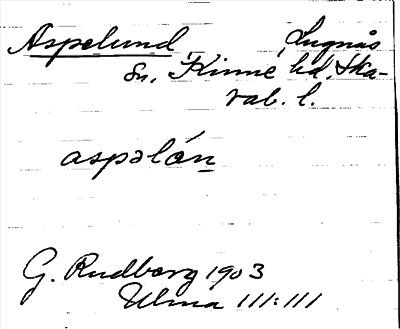 Aspelund, Lugnås
Sn. Kinne hd. Ska-
rab. l.
aspəlón
G. Rudberg 1903
Ulma 111:111